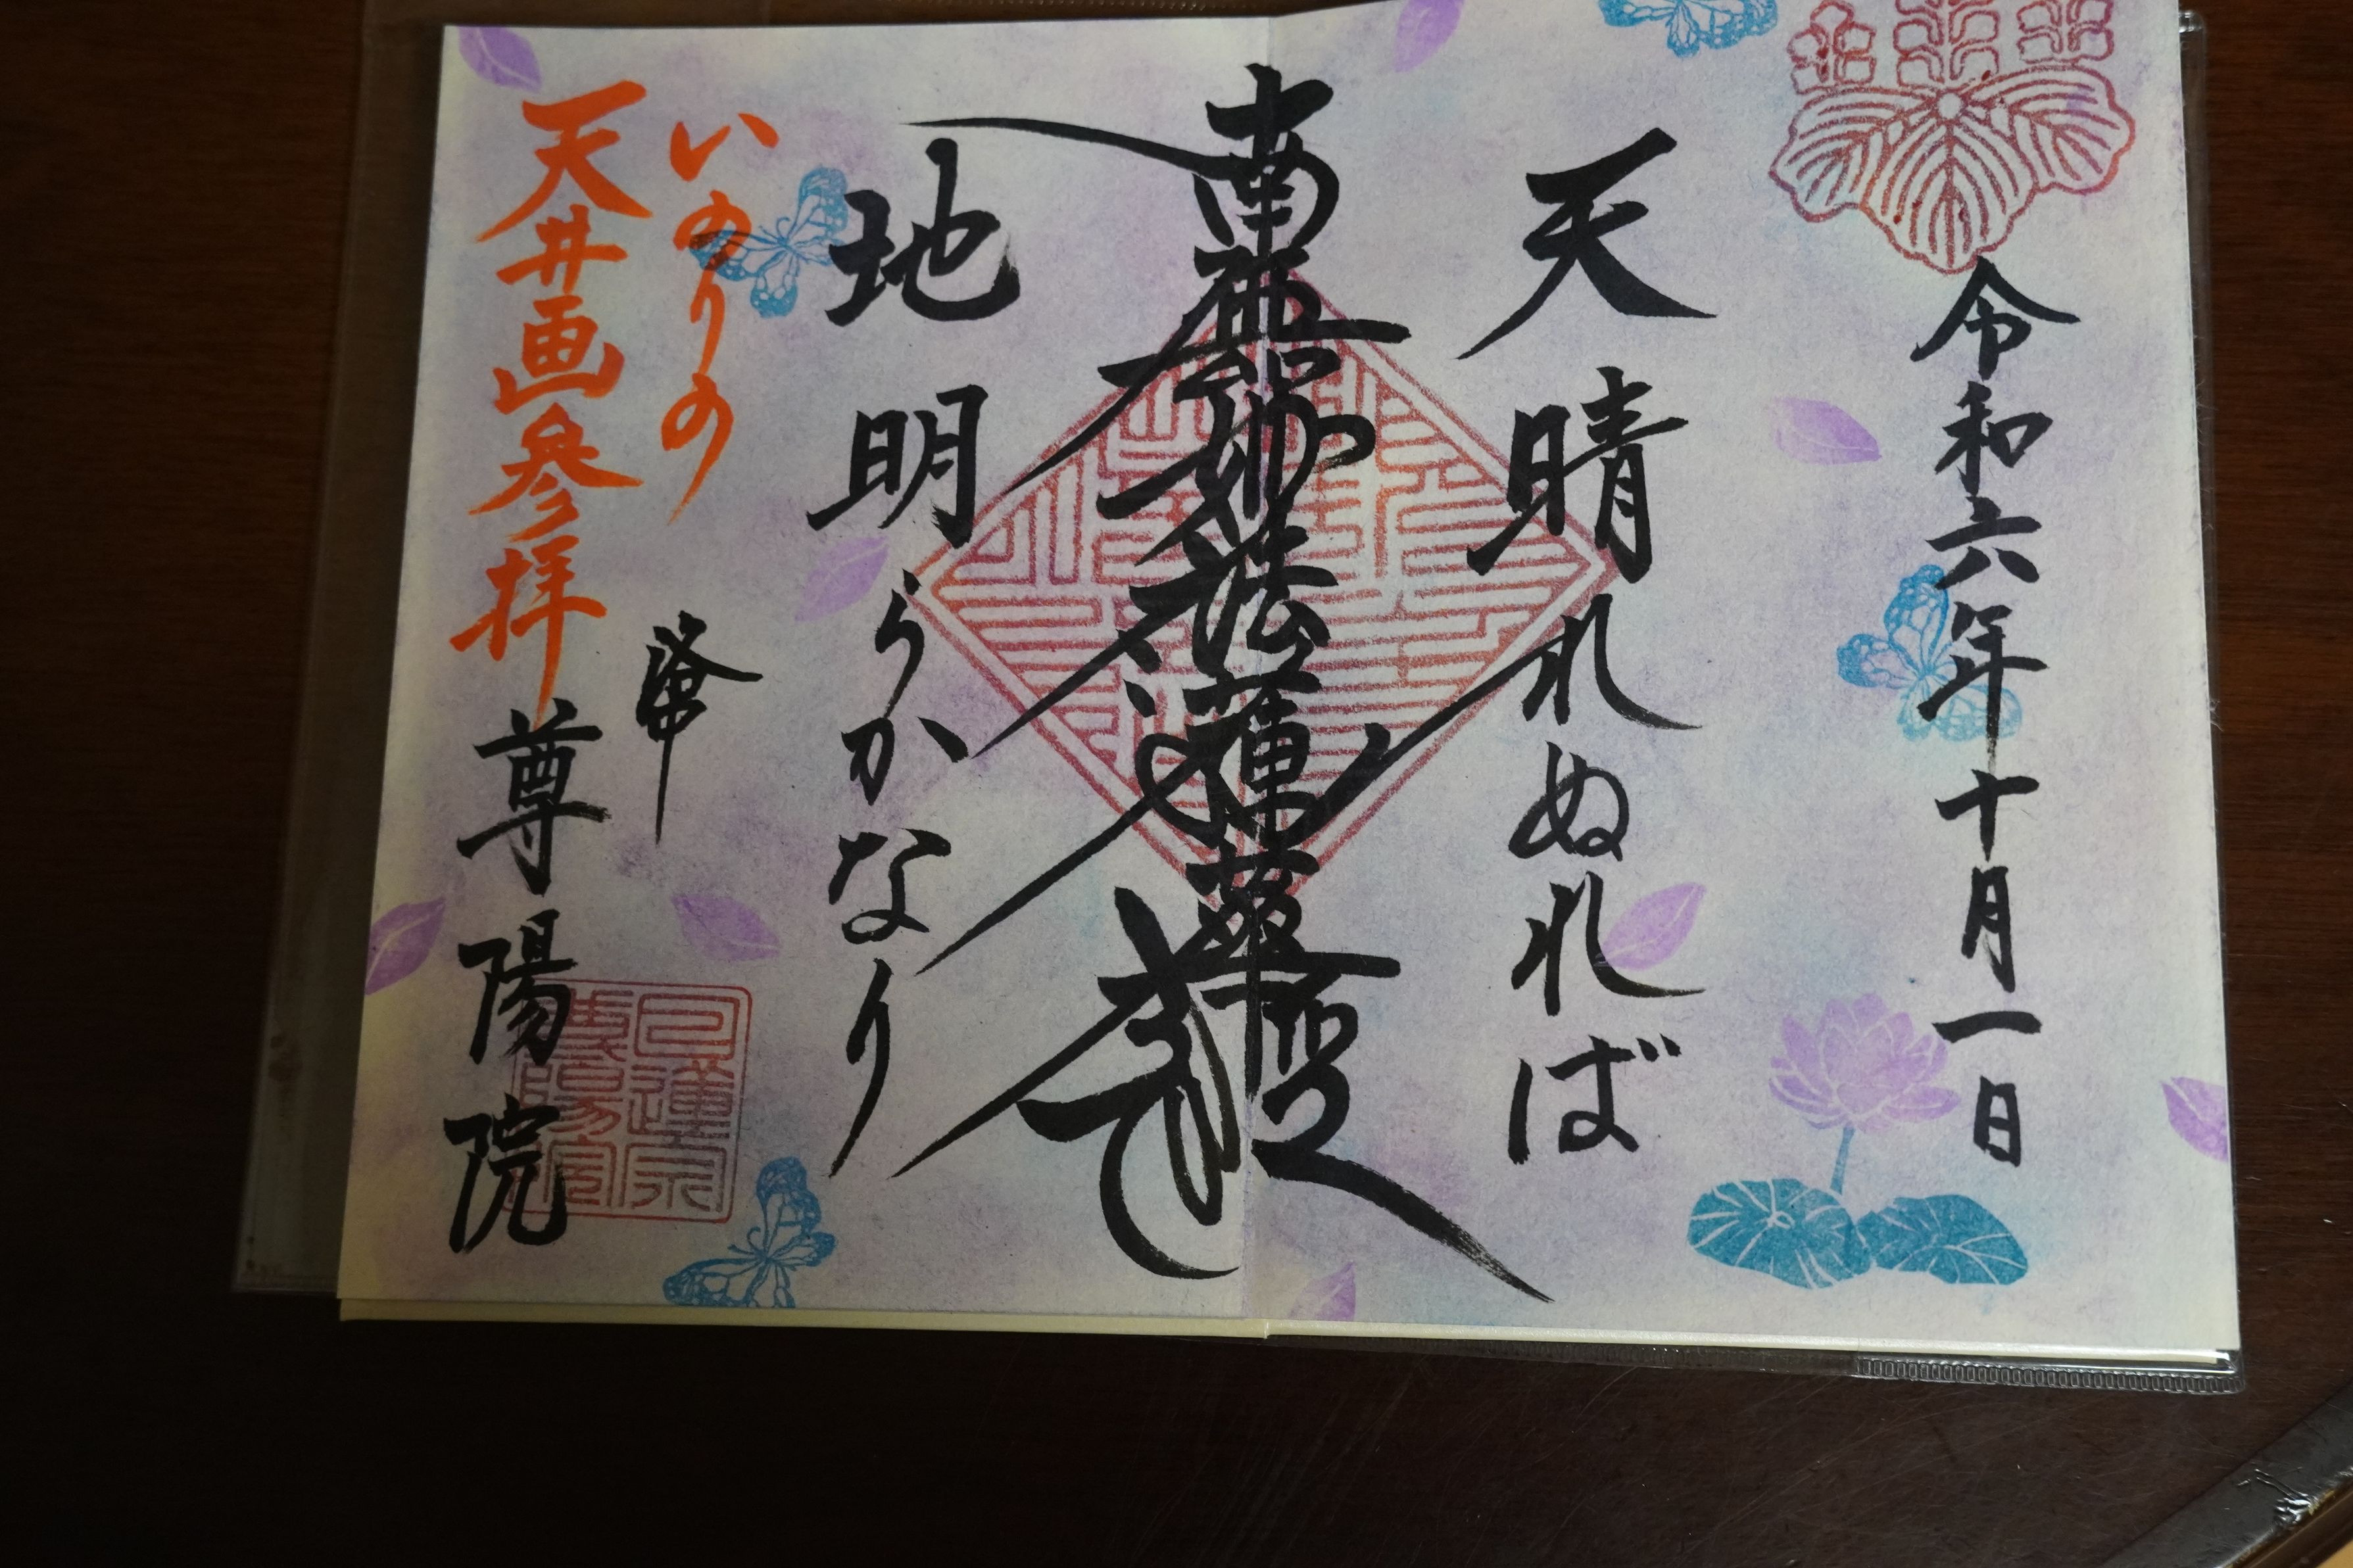 令和六年十月一日
天晴れぬれば
南無妙法蓮華経
地明らかなり
いのりの
天井画参拝
尊陽院
日蓮宗
尊陽院